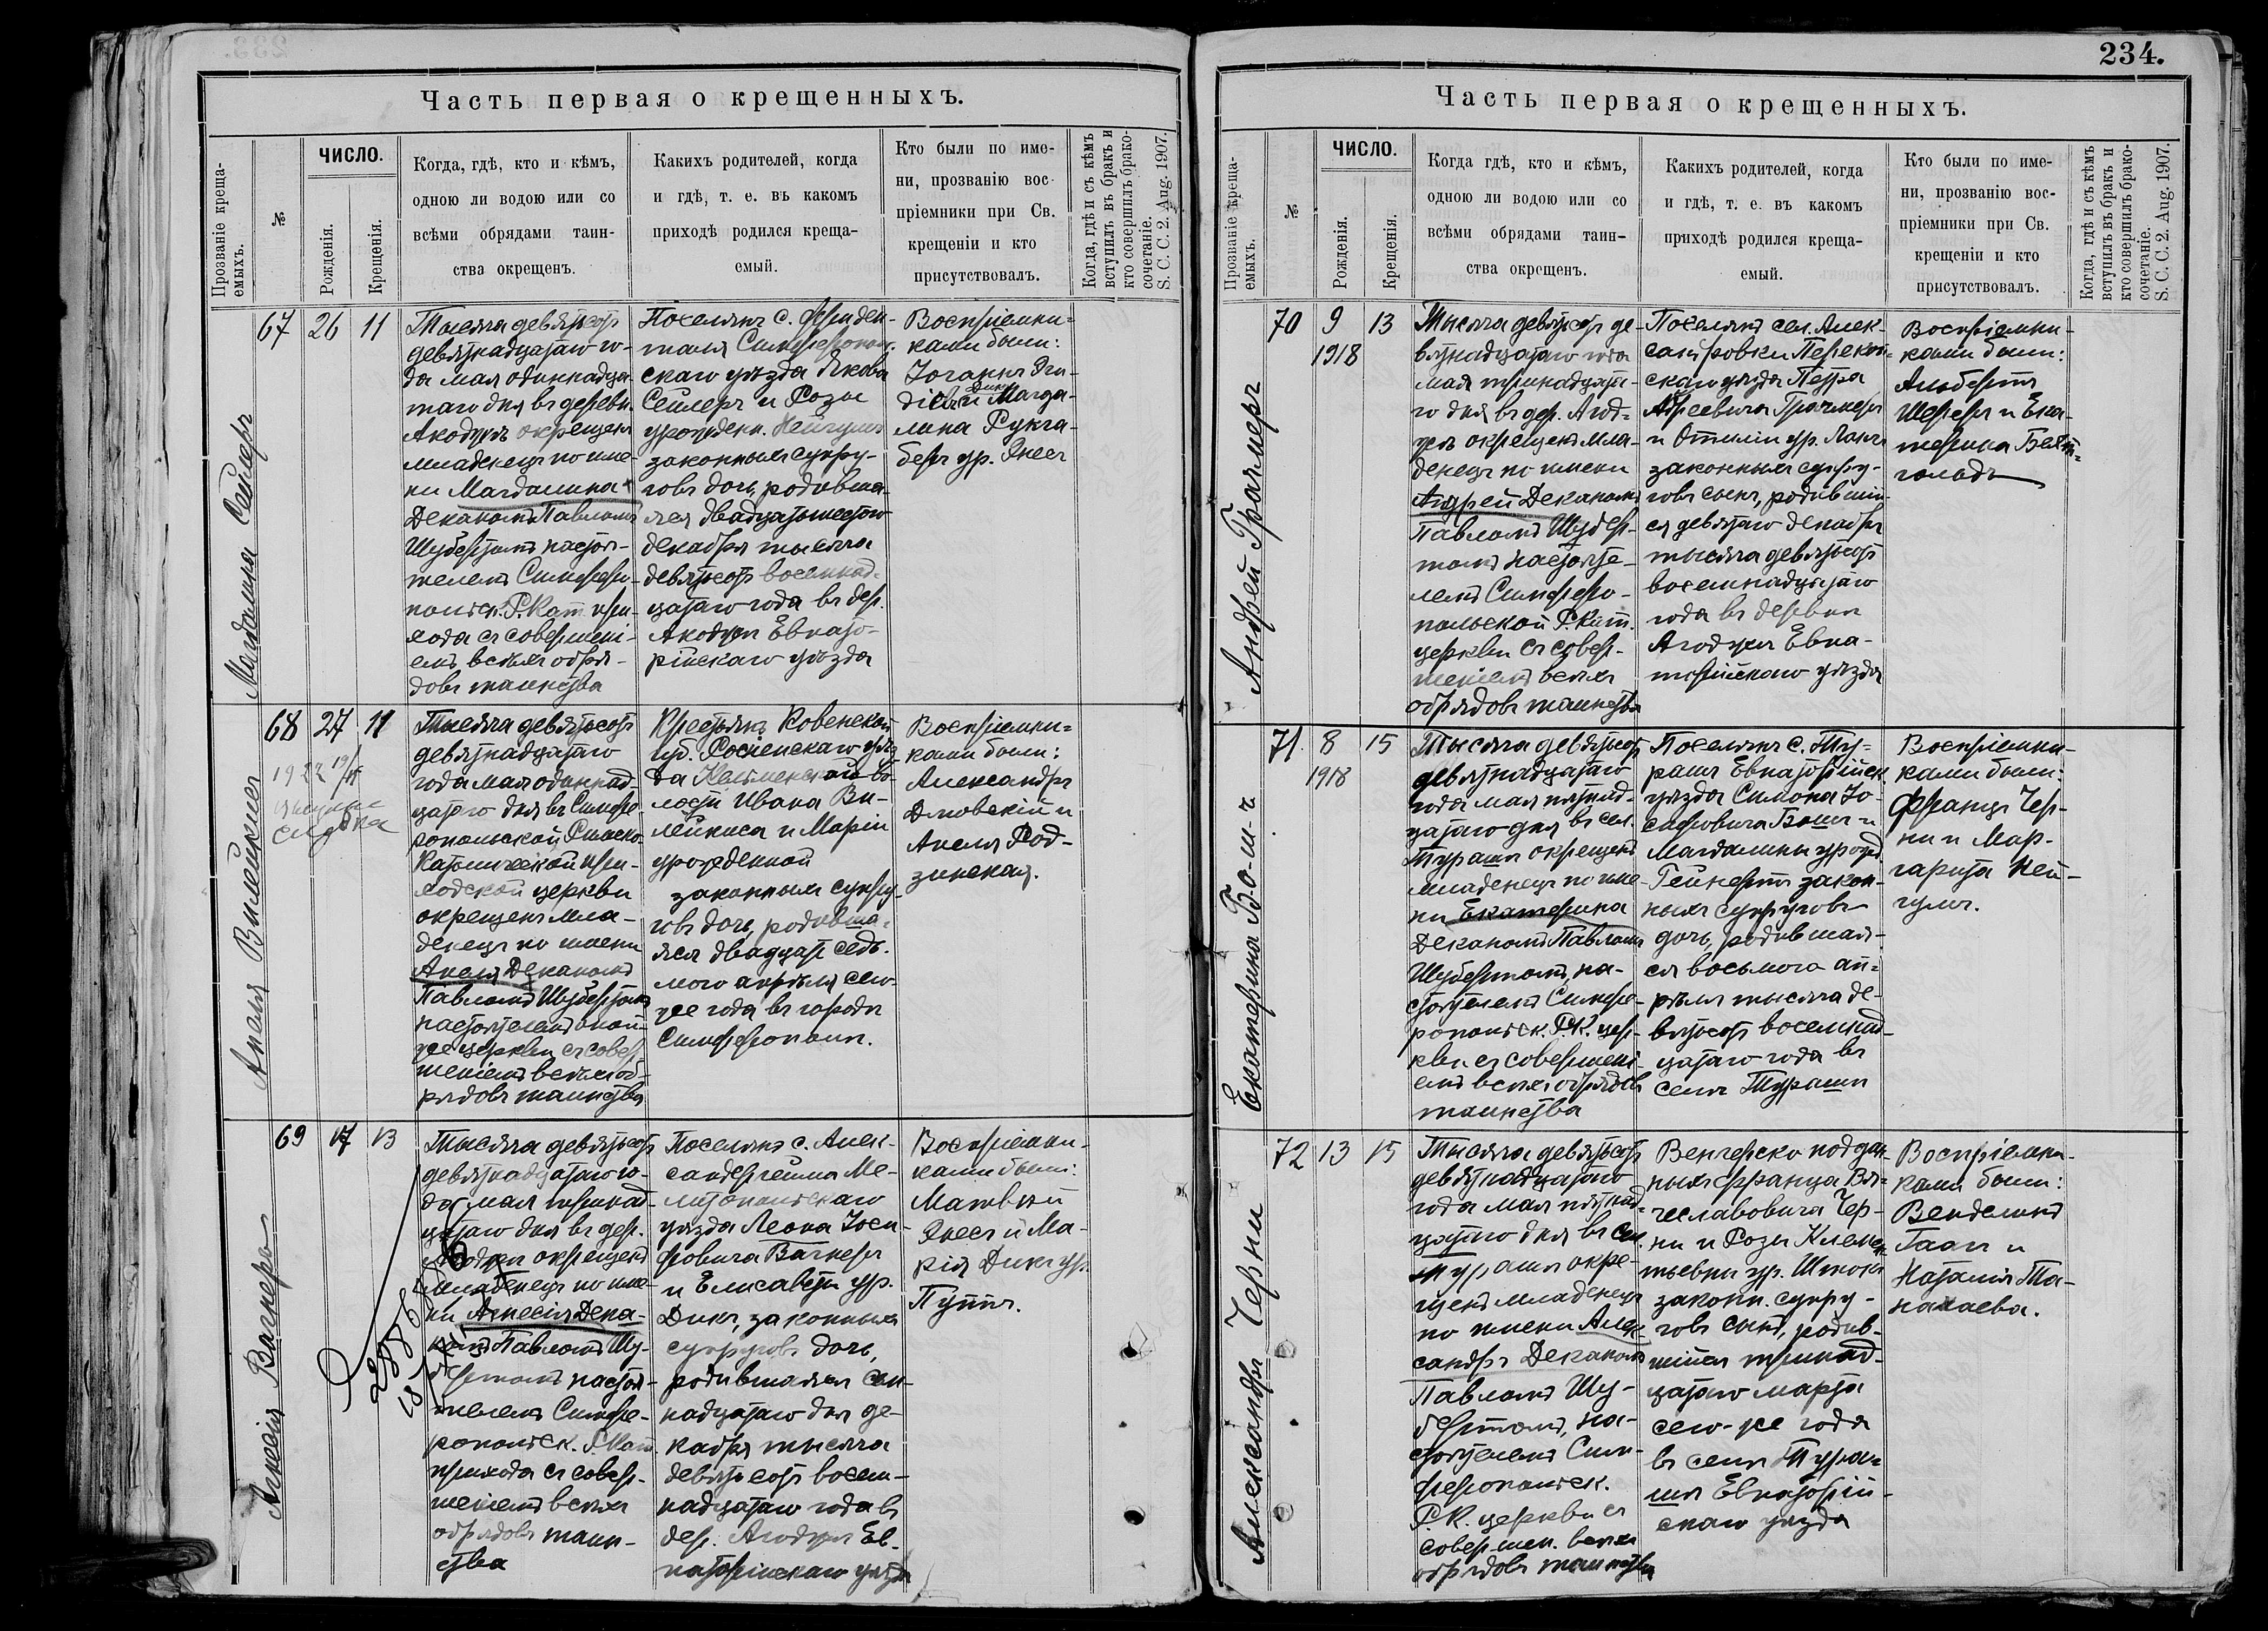 Часть первая о крещенныхъ.
Прозваніе креща-
емыхъ.
№
ЧИСЛО.
Рожденія.
Крещенія.
Когда, гдѣ, кто и кѣмъ,
одною ли водою или со
всѣми обрядами таин-
ства окрещенъ.
Какихъ родителей, когда
и гдѣ, т. е. въ какомъ
приходѣ родился креща-
емый.
Кто были по име-
ни, прозванію вос-
пріемники при Св.
крещеніи и кто
присутствовалъ.
Когда, гдѣ и съ кѣмъ
вступилъ въ бракъ и
кто совершилъ брако-
сочетаніе.
S. C. C. 2. Aug. 1907.
Магдалина Сейлеръ
67 26 11
Тысяча девятьсотъ
девятнадцатаго го-
да мая одиннадца-
таго дня въ деревн.
Акоджъ окрещенъ
младенецъ по име-
ни Магдалина
Деканомъ Павломъ
Шубертомъ настоя-
телемъ Симферо-
польск. Р. Кат. при-
хода съ совершені-
емъ всѣхъ обря-
довъ таинства
Поселянъ с. Фриден-
таля Симферополь-
скаго уѣзда Якова
Сейлеръ и Розы
урожденн. Нейгумъ
законныхъ супру-
говъ дочь, родивша-
яся двадцать шестого
декабря тысяча
девятьсотъ восемнад-
цатаго года въ дер.
Акоджа Евпато-
рійскаго уѣзда
Воспріемни-
ками были:
Іоганнъ
Дикъ
и Магда-
лина Рукга-
беръ ур. Янесъ
Анеля Вилейкисъ
68 27 11
1922 19/IV
выписка
Тысяча девятьсотъ
девятнадцатаго
года мая одиннад-
цатаго дня въ Симфе-
ропольской Римско-
Католической при-
ходской церкви
окрещенъ мла-
денецъ по имени
Анеля Деканомъ
Павломъ Шубертомъ
настоятелемъ оной-
же церкви съ совер-
шеніемъ всѣхъ об-
рядовъ таинства
Крестьянъ Ковенской
губ. Россіенскаго уѣз-
да во-
лости Ивана Ви-
лейкиса и Маріи
урожденной
законныхъ супру-
говъ дочь, родивша-
яся двадцать седь-
мого апрѣля сего-
же года въ городѣ
Симферополѣ.
Воспріемни-
ками были:
Александръ
Дмовскій и
Анеля Род-
зинская.
Агнесія Вагнеръ
69 17 13
Тысяча девятьсотъ
девятнадцатаго го-
да мая тринад-
цатаго дня въ дер.
Агоджа окрещенъ
младенецъ по име-
ни Агнесія Дека-
номъ Павломъ Шу-
бертомъ настоя-
телемъ Симфе-
ропольск. Р. Кат.
прихода съ совер-
шеніемъ всѣхъ
обрядовъ таин-
ства
Поселянъ с. Алек-
сандергейма Ме-
литопольскаго
уѣзда Леона Іоси-
фовича Вагнеръ
и Елисаветы ур.
Дикъ, законныхъ
супруговъ дочь,
родившаяся сем-
надцатаго дня де-
кабря тысяча
девятьсотъ восем-
надцатаго года въ
дер. Агоджа Ев-
паторійскаго уѣзда
Воспріемни-
ками были:
Матвей
Янесъ и Ма-
рія Дикъ ур.
234.
Часть первая о крещенныхъ.
Прозваніе креща-
емыхъ.
№
ЧИСЛО.
Рожденія.
Крещенія.
Когда гдѣ, кто и кѣмъ,
одною ли водою или со
всѣми обрядами таин-
ства окрещенъ.
Какихъ родителей, когда
и гдѣ, т. е. въ какомъ
приходѣ родился креща-
емый.
Кто были по име-
ни, прозванію вос-
пріемники при Св.
крещеніи и кто
присутствовалъ.
Когда, гдѣ и съ кѣмъ
вступилъ въ бракъ и
кто совершилъ брако-
сочетаніе.
S. C. C. 2. Aug. 1907.
Андрей Грачмеръ
70 9 13
1918
Тысяча девятьсотъ де-
вятнадцатаго года
мая тринадцата-
го дня въ дер. Агод-
жа окрещенъ мла-
денецъ по имени
Андрей Деканомъ
Павломъ Шубер-
томъ настояте-
лемъ Симферо-
польской Р. Кат.
церкви съ совер-
шеніемъ всѣхъ
обрядовъ таинства
Поселянъ сел. Алек-
сандровки Перекоп-
скаго уѣзда Петра
Грачмеръ
и Отиліи ур. Лангъ
законныхъ супру-
говъ сынъ, родивший-
ся девятаго декабря
тысяча девятьсотъ
восемнадцатаго
года въ деревнѣ
Агоджа Евпа-
торійскаго уѣзда
Воспріемни-
ками были:
Альбертъ
Шереръ и Ека-
терина
Екатерина Бошъ
71. 8 15
1918
Тысяча девятьсотъ
девятнадцатаго
года мая пятнад-
цатаго дня въ сел.
Турашъ окрещенъ
младенецъ по име-
ни Екатерина
Деканомъ Павломъ
Шубертомъ, на-
стоятелемъ Симфе-
ропольск. Р.К. цер-
кви съ совершені-
емъ всѣхъ обрядовъ
таинства
Поселянъ с. Ту-
рашъ Евпаторійск.
уѣзда Симона Іо-
сифовича Бошъ и
Магдалины урожд.
Гейнертъ закон-
ныхъ супруговъ
дочь, родившая-
ся восьмого ап-
рѣля тысяча де-
вятьсотъ восемнад-
цатаго года въ
селѣ Турашъ
Воспріемни-
ками были:
Францъ Чер-
ни и Мар-
гарита Ней-
гумъ.
Александръ Черни
72 13 15
Тысяча девятьсотъ
девятнадцатаго
года мая пятнад-
цатаго дня въ сел.
Турашъ окре-
щенъ младенецъ
по имени Алек-
сандръ Деканомъ
Павломъ Шу-
бертомъ, на-
стоятелемъ Сим-
феропольск.
Р.К. церкви съ
совершен. всѣхъ
обрядовъ таинства
Венгерско поддан-
ныхъ Франца Вя-
чеславовича Чер-
ни и Розы Клемен-
тьевны ур.
законн. супру-
говъ сынъ, родив-
шійся тринад-
цатаго марта
сего-же года
въ селѣ Тура-
шъ Евпаторій-
скаго уѣзда
Воспріемни-
ками были:
Венделинъ
Гаагъ и
Наталія Та-